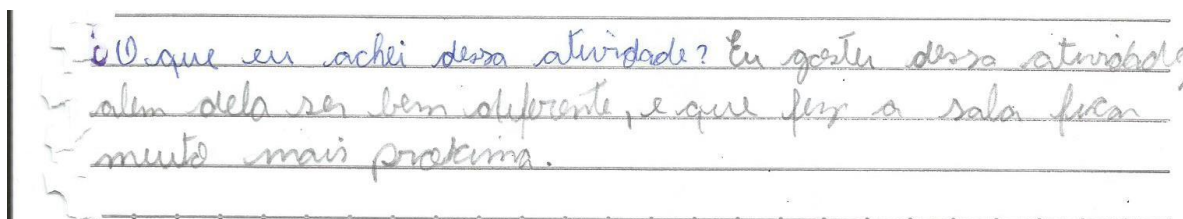 ¿O que eu achei dessa atividade? Eu gostei dessa atividade,
alem dela ser bem diferente, e que fez a sala ficar
muito mais proxima.